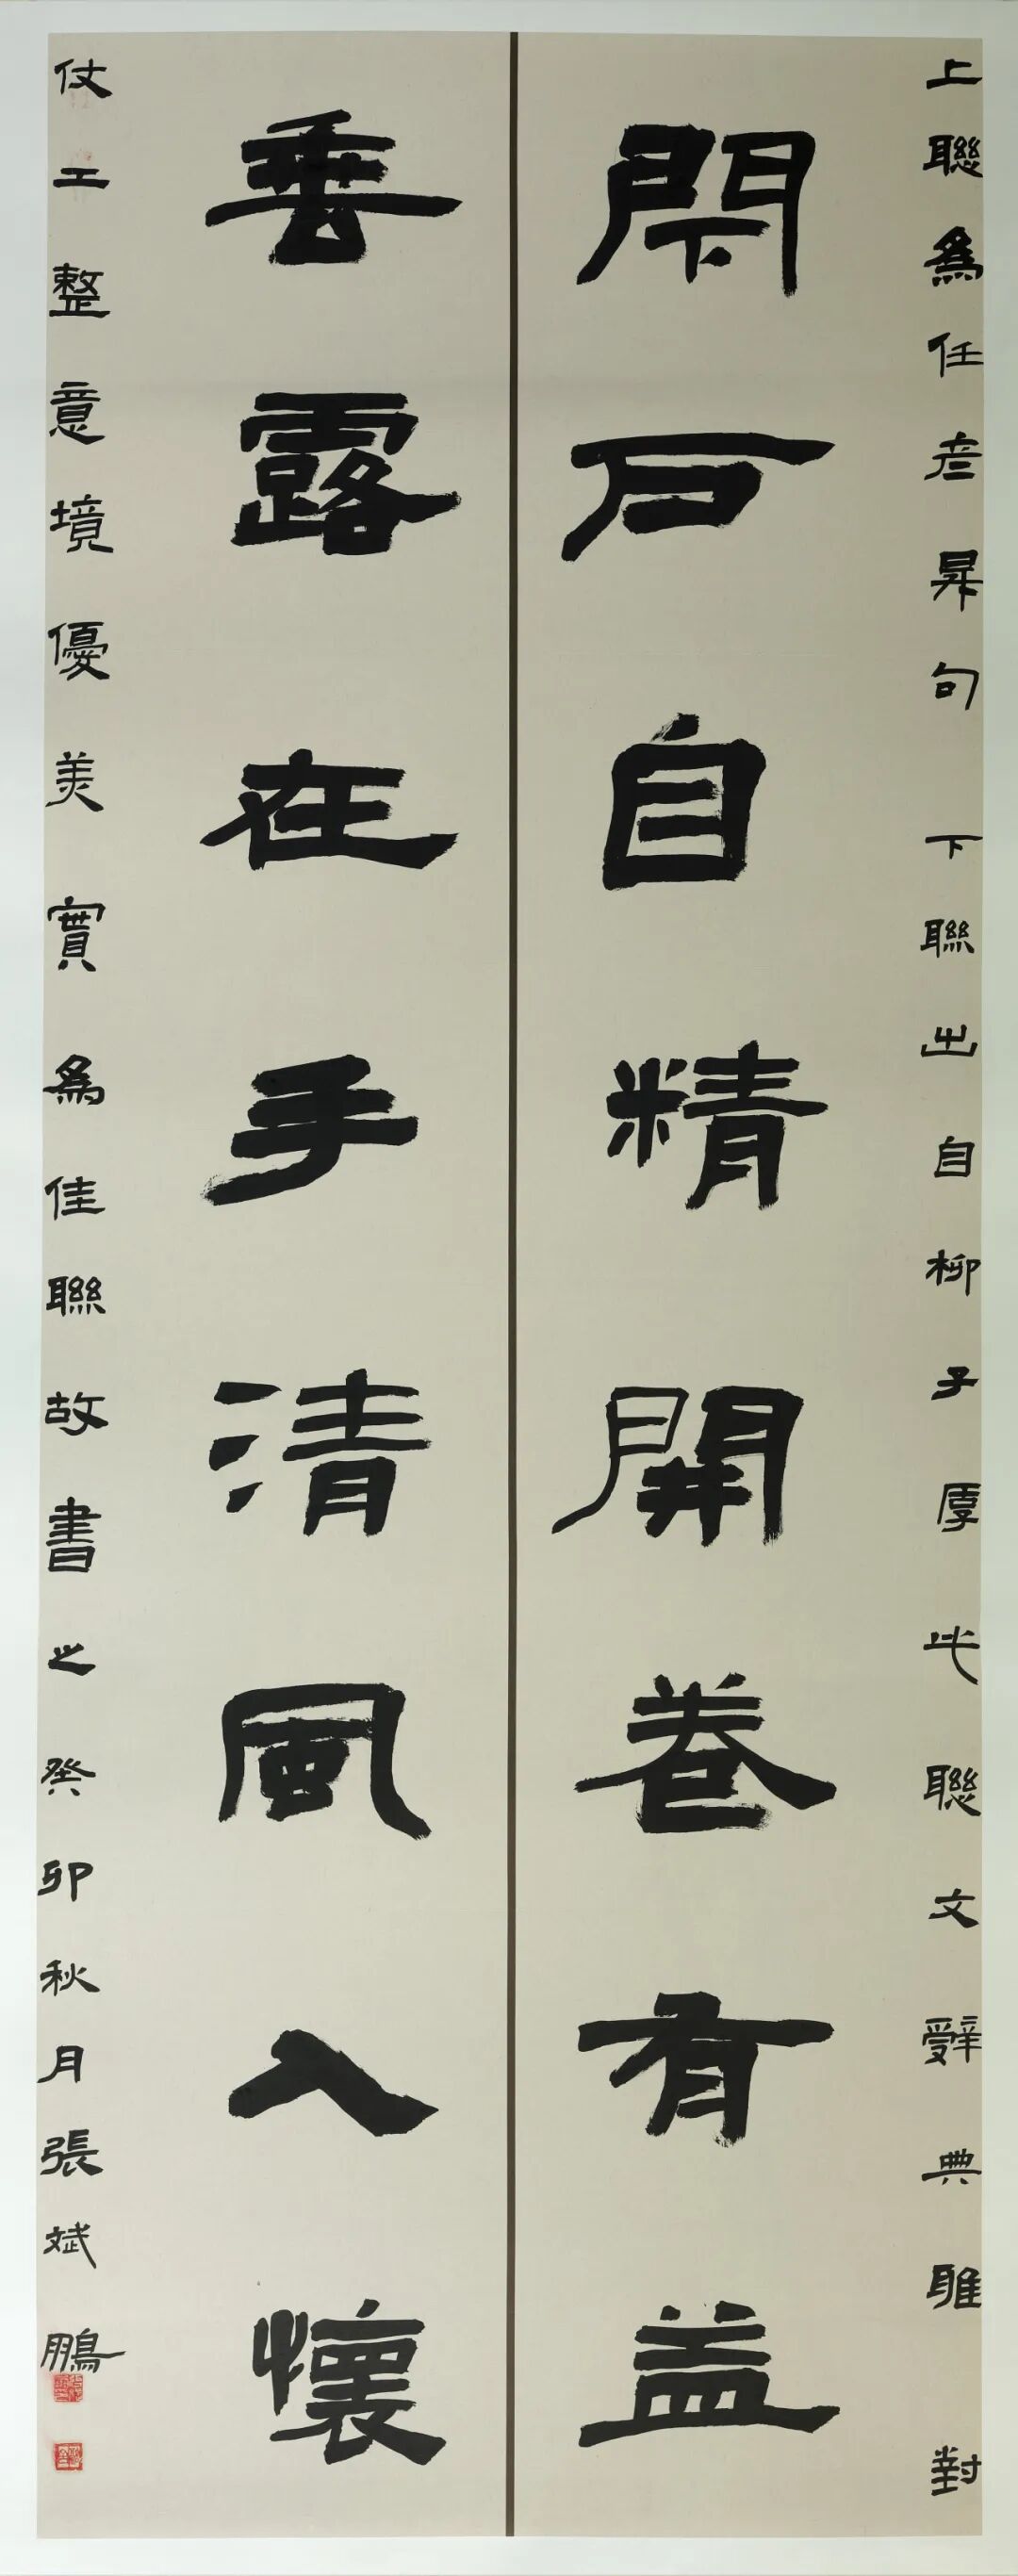 上聯爲任彦昇句下聯出自柳子厚此聯文辤典雅對
閇户自精開卷有益
垂露在手清風入懷
仗工整意境優美實爲佳聯故書之癸卯秋月張斌鵬